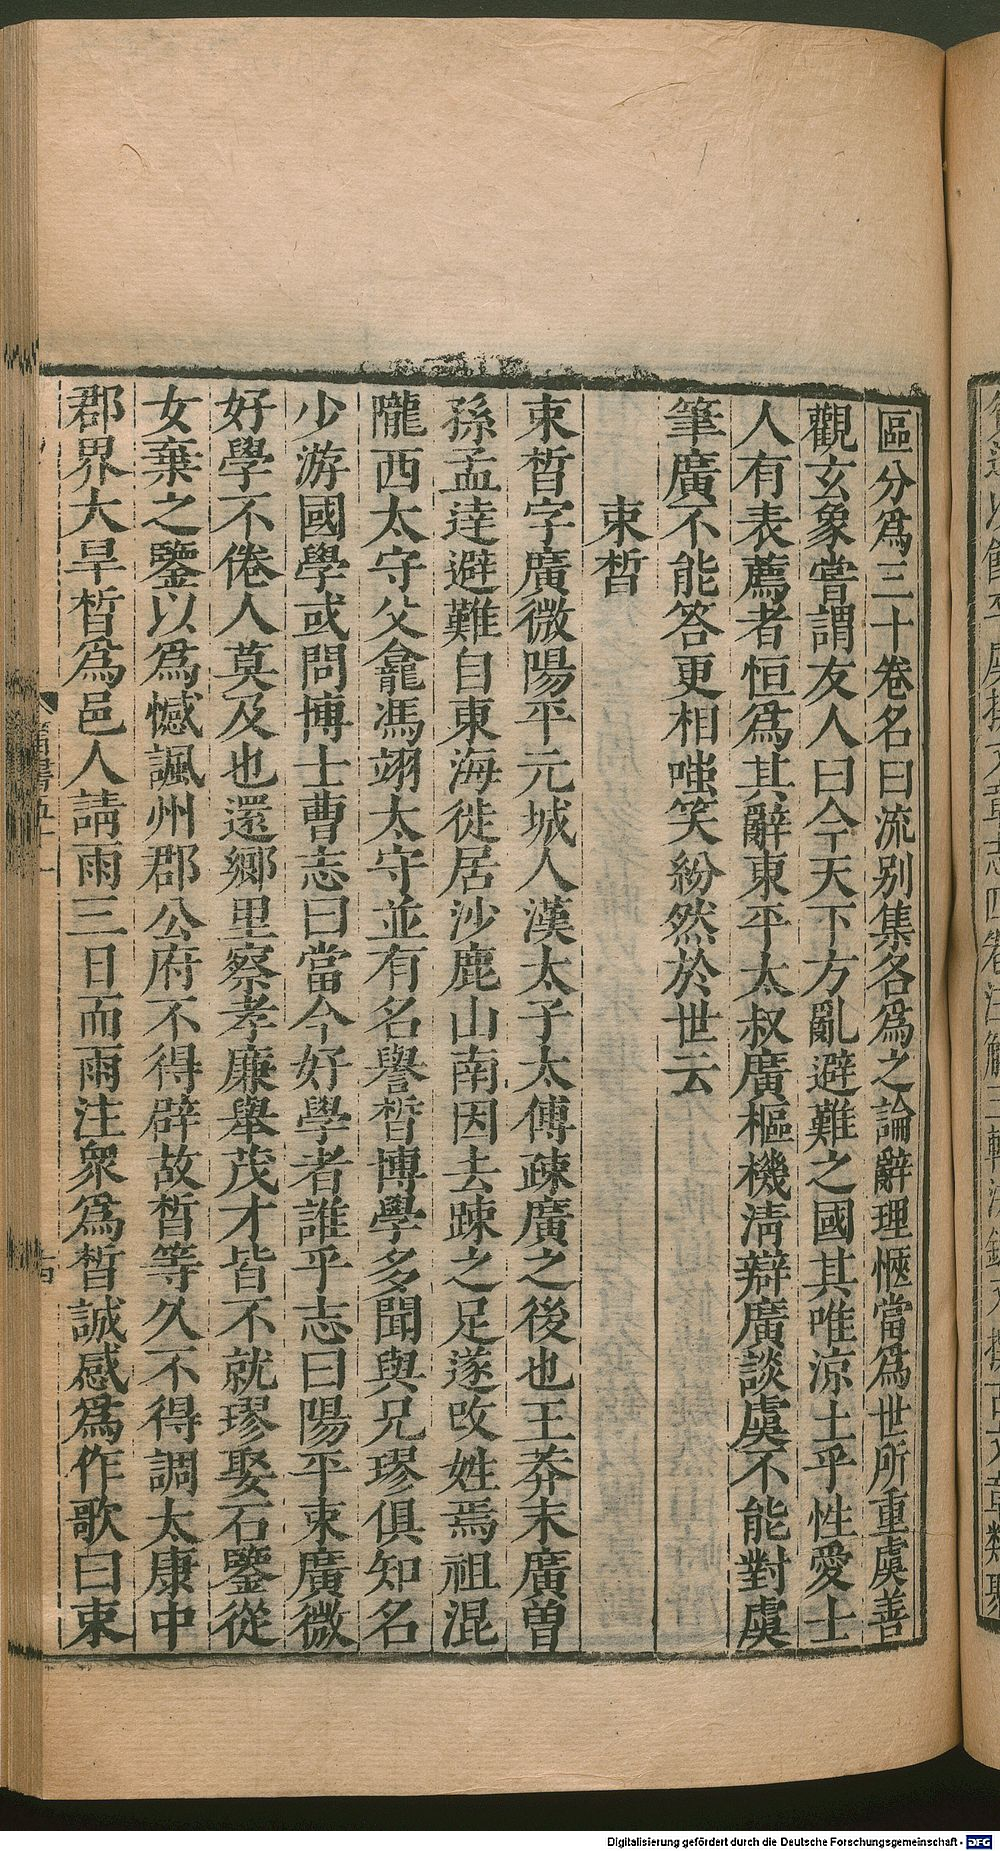 區分爲三十卷名曰流別集各爲之論辭理愜當爲世所重虞善
觀玄象嘗謂友人曰今天下方亂避難之國其唯涼土乎性愛士
人有表薦者恒爲其辭東平太叔廣樞機清辯廣談虞不能對虞
筆廣不能答更相嗤笑紛然於世云
束晳
束晳字廣微陽平元城人漢太子太傅疎廣之後也王莽末廣曾
孫孟達避難自東海徙居沙鹿山南因去踈之足遂改姓焉祖混
隴西太守父龕馮翊太守並有名譽晳博學多聞與兄璆俱知名
少游國學或問博士曹志曰當今好學者誰乎志曰陽平束廣微
好學不倦人莫及也還鄉里察孝廉舉茂才皆不就璆娶石鑒從
女棄之鑒以爲憾諷州郡公府不得辟故晳等久不得調太康中
郡界大旱晳爲邑人請雨三日而雨注衆爲晳誠感爲作歌曰束
晉書五十一
十四
Digitalisierung gefördert durch die Deutsche Forschungsgemeinschaft - DFG